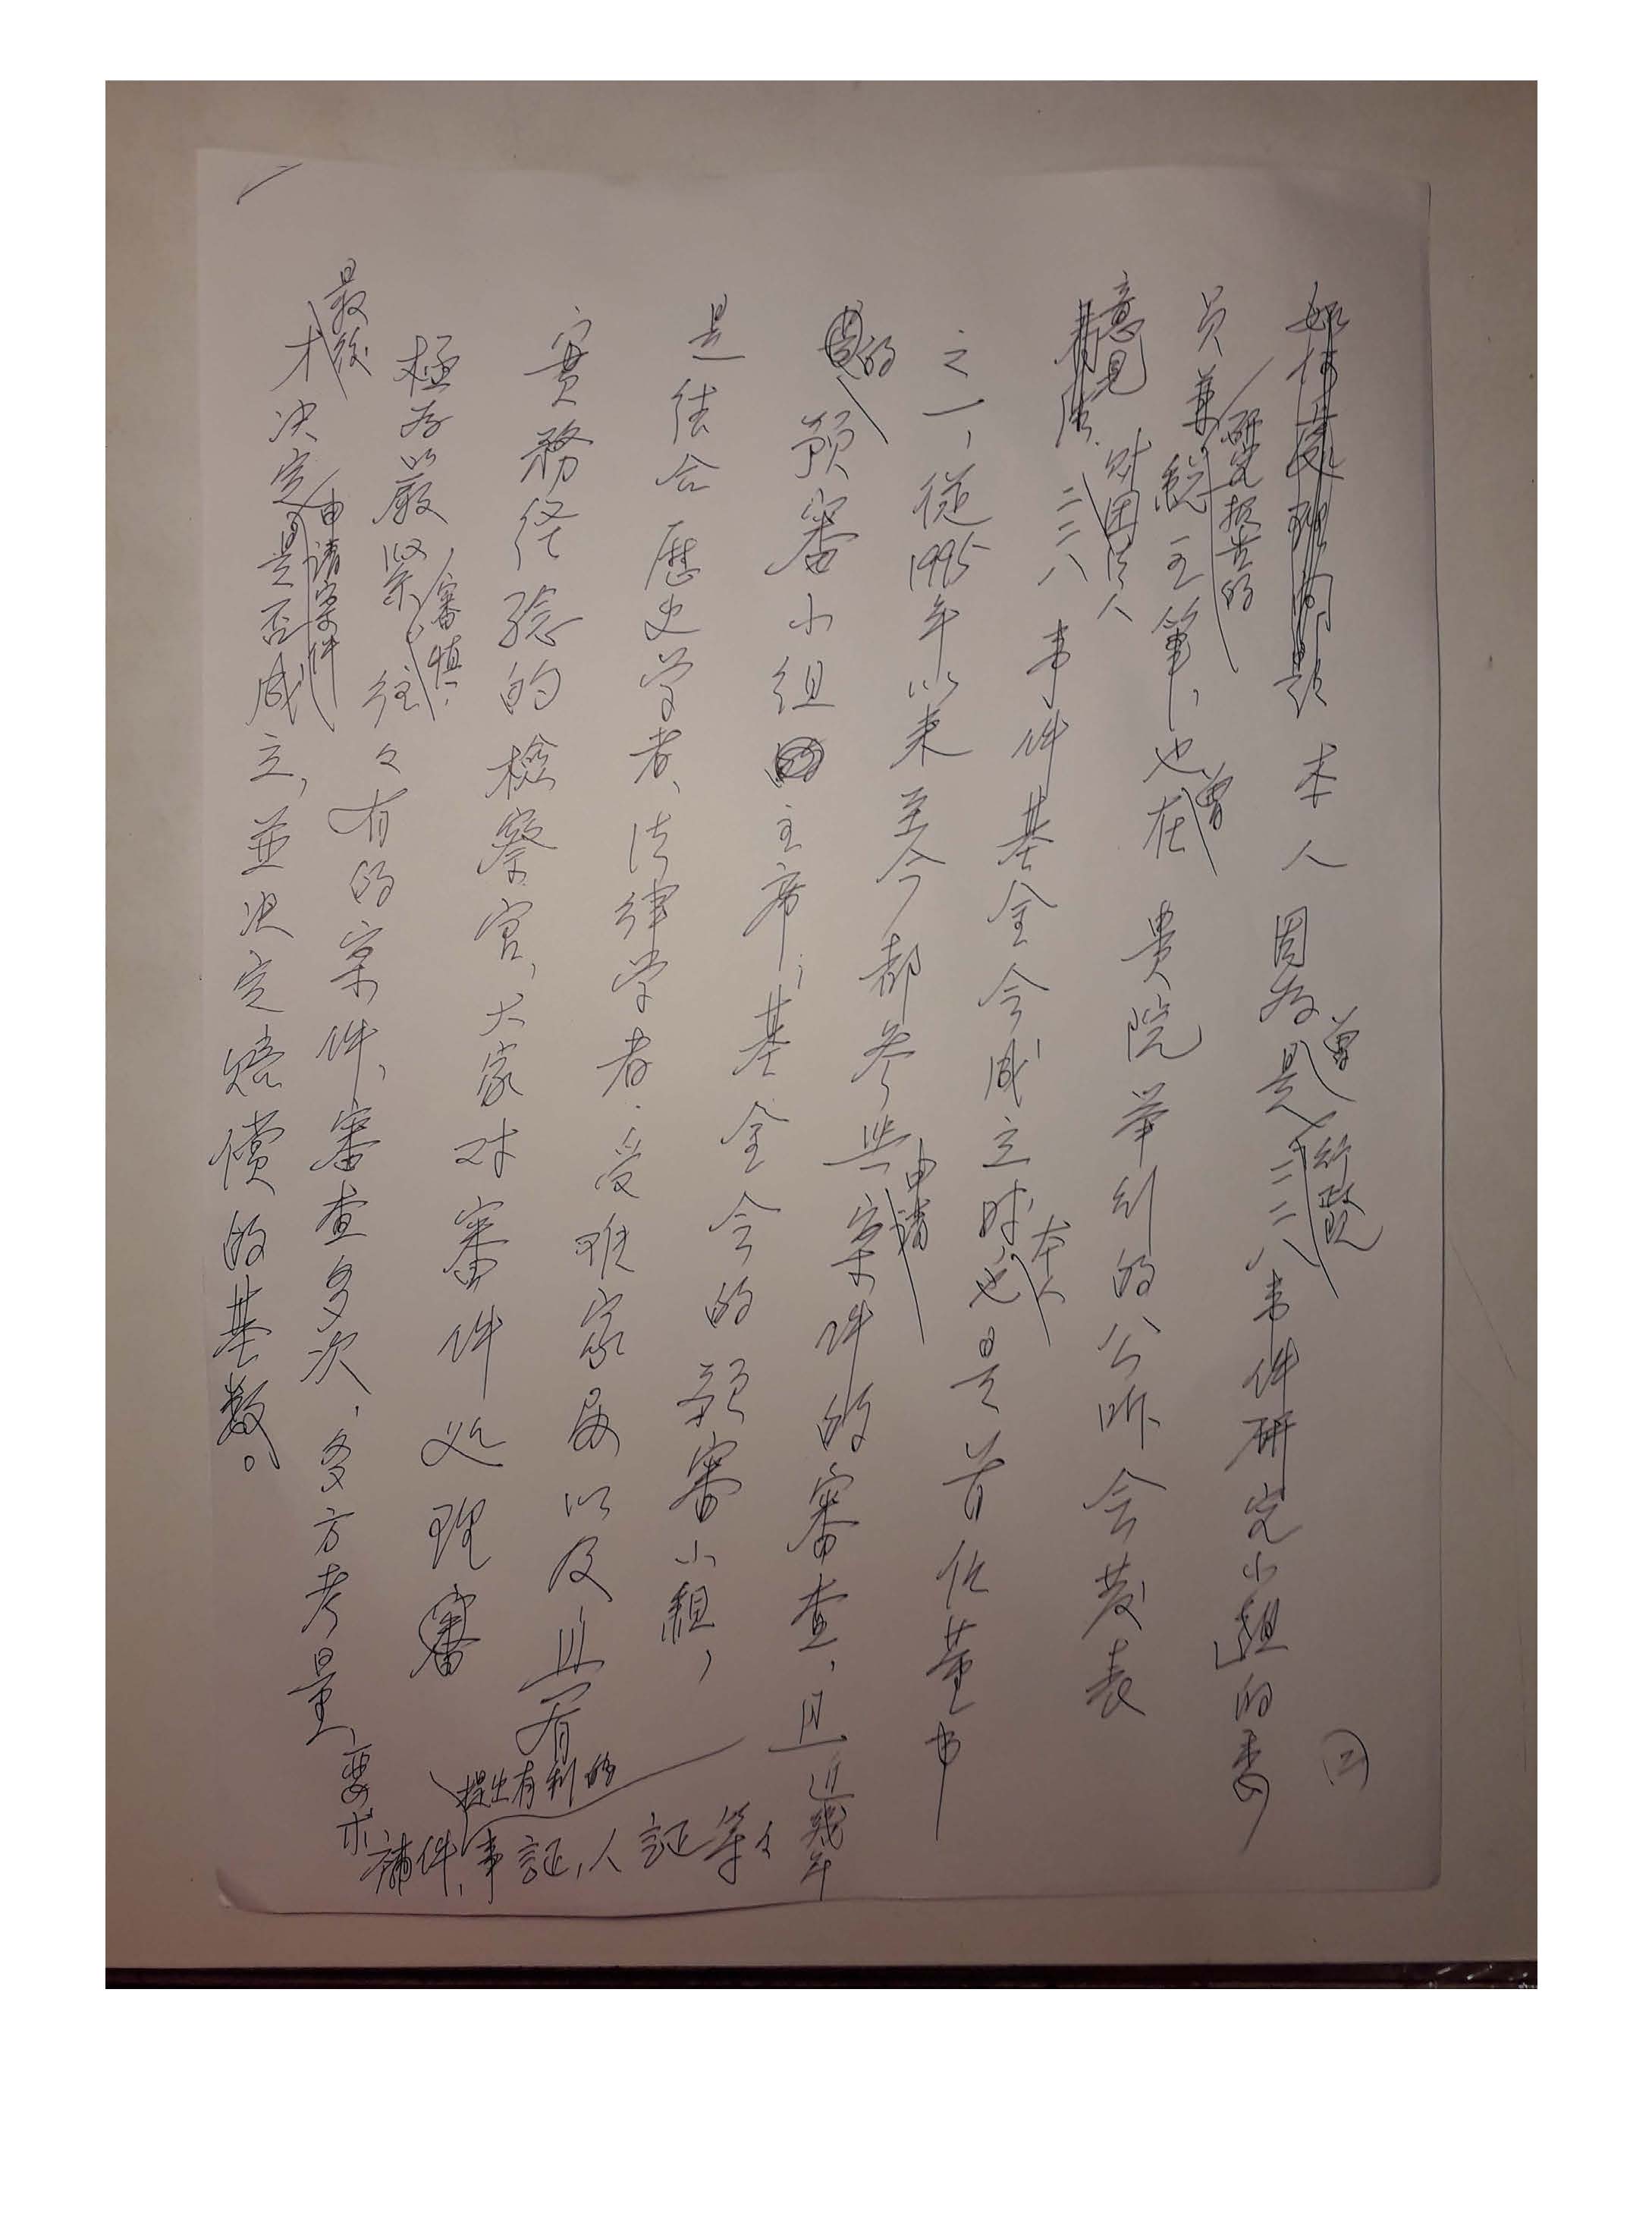 (二)
本人因為曾是行政院二二八事件研究小組的委
員兼研究報告的總主筆，也曾在 貴院舉列的公听会發表
意見。財團法人二二八事件基金会成立時，本人也是首任董事
之一，從1995年以來至今都參與申請案件的審查，且近幾年
的預審小組主席；基金会的預審小組，
是結合歷史学者、法律学者、受难家屬以及具有
實務経驗的檢察官，大家对審件处理審
極為以嚴緊，審慎，往々有的案件，審查多次，多方考量，要求
補件，提出有利的事証，人証等々
最後才決定申請案件是否成立，並決定賠償的基數。